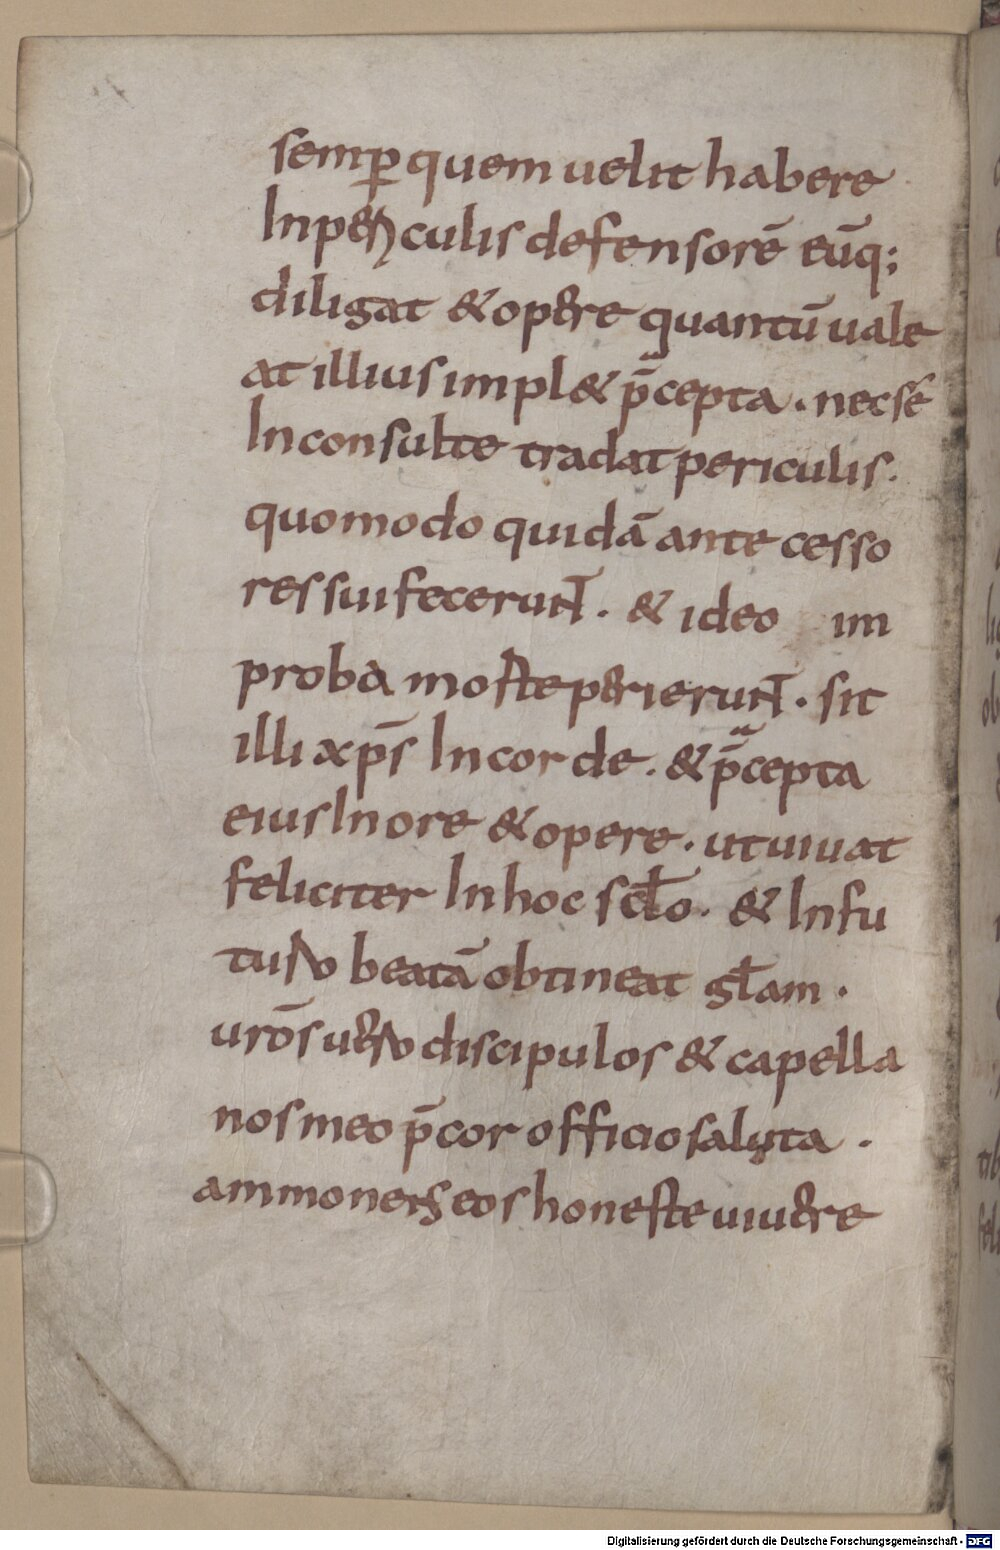 semꝑ quem uelit habere
Inpericulis defensorē eūq;
diligat & opere quantū uale
at illius impl& p̄cepta . nec sē
Inconsulte tradat periculis .
quomodo quidā ante cesso
res sui fecerunt̄ . & ideo im
proba morte perierunt̄ . sit
illi xp̄s In corde . & p̄cepta
eius In ore & opere . ut uiuat
feliciter In hoc sc̄lo . & In fu
turo beatā obtineat gl̄am .
urōs uero discipulos & capella
nos meo p̄cor officio saluta .
ammonens eos honeste uiuere
Digitalisierung gefördert durch die Deutsche Forschungsgemeinschaft - DFG